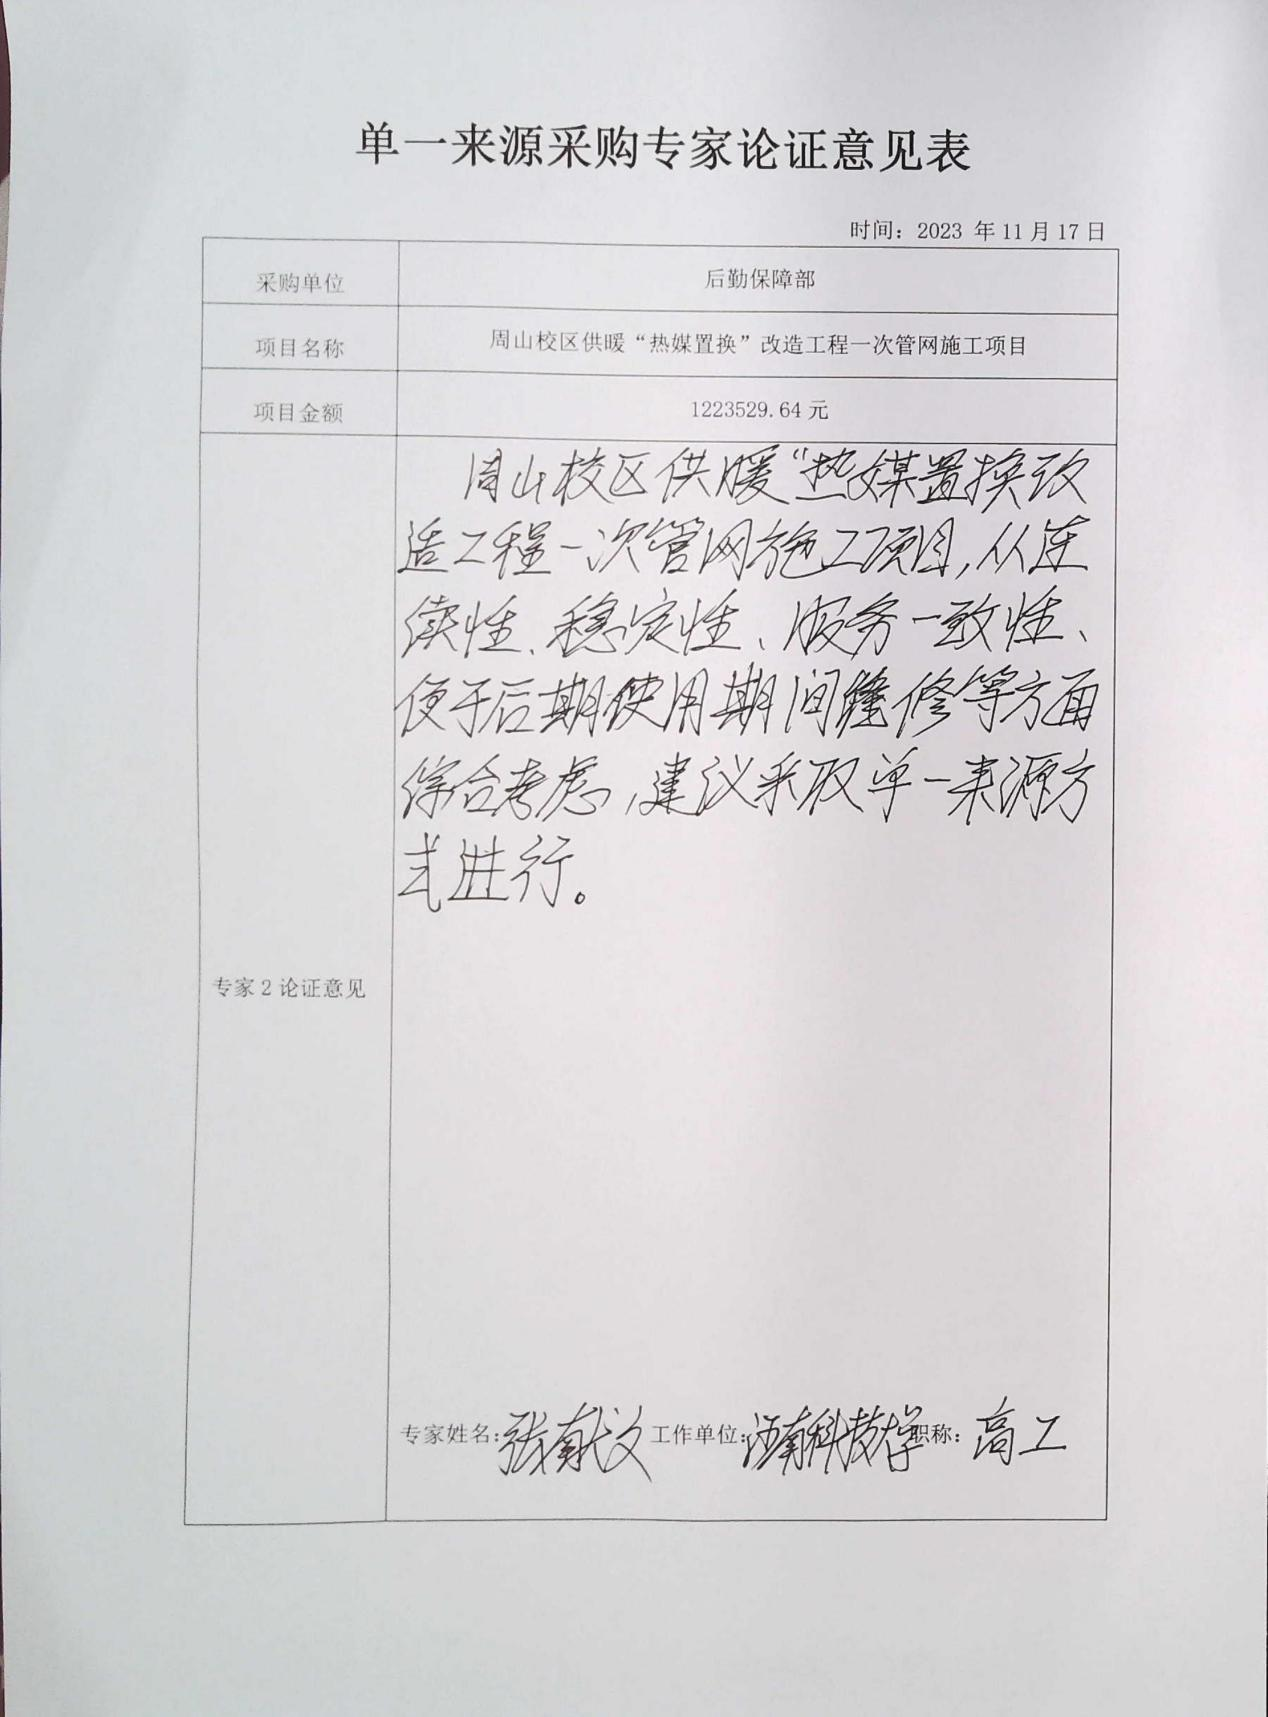 单一来源采购专家论证意见表
时间：2023 年11月17日
采购单位
后勤保障部
项目名称
周山校区供暖“热媒置换”改造工程一次管网施工项目
项目金额
1223529.64元
周山校区供暖“热媒置换改
造工程一次管网施工项目，从连
续性、稳定性、服务一致性、
便于后期使用期间维修等方面
综合考虑，建议采取单一来源方
式进行。
专家2论证意见
专家姓名：张献文 工作单位：河南科技大学 职称：高工